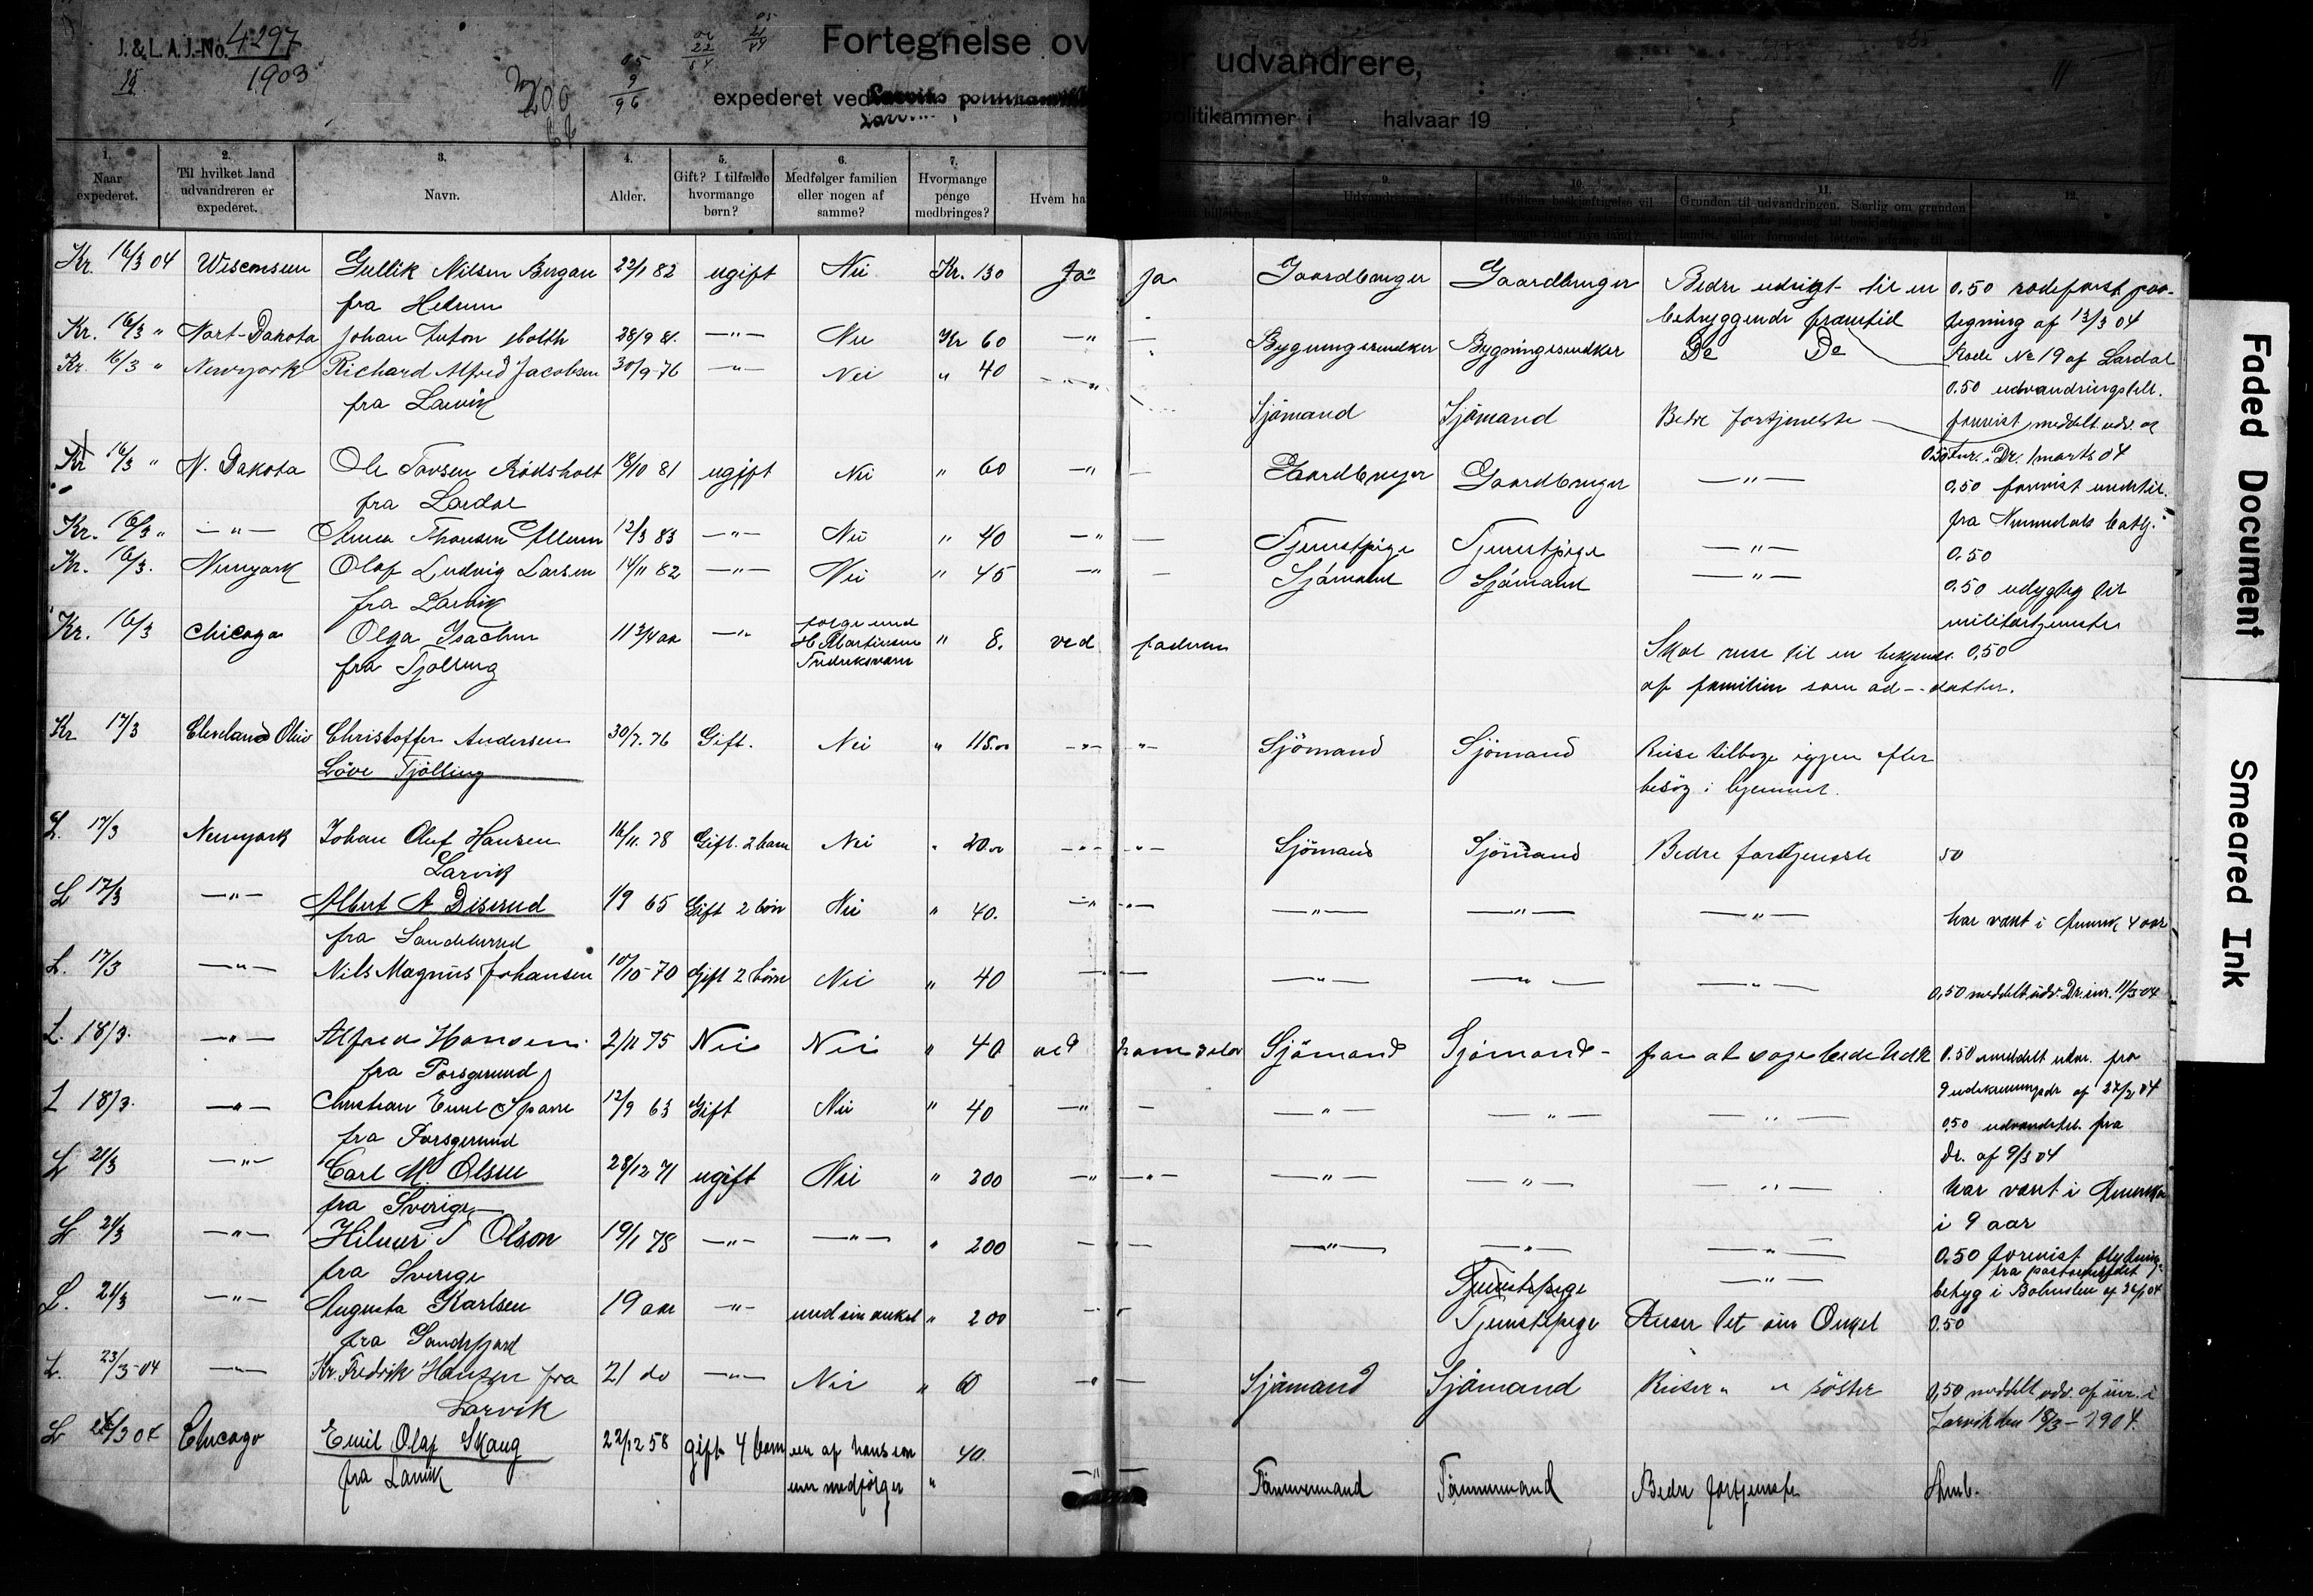 J. & L. A. J.-No. 4297
15. 1903
200
05
9
96
Fortegnelse over udvandrere,
expederet ved politikammer i halvaar 19
1. Naar expederet.
2. Til hvilket land udvandreren er expederet.
3. Navn.
4. Alder.
5. Gift? I tilfælde hvormange børn?
6. Medfølger familien eller nogen af samme?
7. Hvormange penge medbringes?
Hvem ha
9.
10.
11. Grunden til udvandringen. Særlig om grunden
12.
Kr. 16/3 04 Wisconsin Gullik Nilsen Bergan 22/1 82 ugift Nei Kr. 130 Ja ja Gaardbruger Gaardbruger Bedre udsigt til en 0.50
fra Hedrum betryggende framtid tegning af 13/3 04
Kr. 16/3 " Nort-Dakota Johan Anton 28/9 81. —"— Nei Kr 60 —"— Bygningssnedker Bygningssnedker Do Do Rode No 19 af Lardal
Kr. 16/3 " Newyork Richard Alfred Jacobsen 30/9 76 —"— Nei " 40 —"— 0.50 udvandringstill.
fra Larvik Sjömand Sjömand Bedre fortjeneste forevist meddelt udv. af
0.50 Dr. 1 marts 04
Kr 16/3 " N. Dakota Ole Torsen Rödsholt 18/10 81 ugift Nei " 60 —"— Gaardbruger Gaardbruger —"— 0.50 forevist
fra Lardal fra Numedals batlj.
Kr. 16/3 " —"— Anna Thorsen 12/3 83 —"— Nei " 40 —"— Tjenestpige Tjenestpige —"— 0.50
Kr. 16/3. Newyork Olaf Ludvig Larsen 14/11 82 —"— Nei " 45 —"— Sjömand Sjömand —"— 0.50 udygtig til
fra Larvik militærtjeneste
Kr. 16/3 Chicago Olga Isachsen 11 3/4 aar —"— følge med " 8. ved faderen
H Martinsen
fra Tjölling Fredriksværn Skal reise til en bekjendt 0,50
af familien som ad-- datter.
Kr 17/3 Cleveland Ohio Christoffer Andersen 30/7. 76 Gift. Nei " 115.00 —"— "— Sjömand Sjömand Reise tilbage igjen efter
Löve Tjölling besög i hjemmet.
L. 17/3 Newyork Johan Oluf Hansen 16/11. 78 Gift. 2 barn Nei " 20.00 —"— —"— Sjömand Sjömand Bedre fortjeneste 50
Larvik
L 17/3 —"— Albert A Diserud 1/9 65 Gift 2 börn Nei " 40. —"— —"— —"— —"— —"— har vært i Amerik 4 aar
fra Sandeherred
L. 17/3 —"— Nils Magnus Johansen 10/10 - 70 Gift 2 börn Nei " 40 —"— —"— —"— —"— 0,50 meddelt udv. Dr. inr. 11/3-04
L. 18/3. —"— Alfred Hansen 2/11 75 Nei Nei " 40 ved ham selv Sjömand Sjömand - for at söge bedre 0.50 meddelt udvr. fra
fra Porsgrund 9 udskrivningsdr af 27/2 04
L 18/3. —"— Christian Emil Sparre 12/9 63 Gift Nei " 40 —"— —"— —"— —"— 0.50 udvandrtil. fra
fra Porsgrund Dr. af 9/3 04
L 21/3 —"— Carl M. Olsen 28/12 71 ugift Nei " 200 —"— —"— —"— —"— —"— har vært i Amerika
fra Sverige i 9 aar
L 21/3 —"— Hilmer T Olson 19/1 78 —"— —"— " 200 —"— —"— —"— —"— 0.50 forevist flytnings-
fra Sverige Tjenestepige —"— fra pastorembedet
betyg i Bohuslen
L. 21/3 —"— Augusta Karlsen 19 aar —"— med sin onkel " 200 Tjenestepige Reiser til sin Onkel 0.50
fra Sandefjord
L. 23/3-04 —"— Kr. Fredrik Hansen fra 21 do —"— Nei " 60 —"— Sjömand Sjömand Reiser " " söster 0,50 meddelt udv. af inr. i
Larvik Larvik den 18/3-1904.
L 26/3 04 Chicago Emil Olaf Skaug 22/12 58 gift 4 barn en af hans 40.
fra Larvik medfölger " —"— Tömmermand Tömmermand Bedre fortjeneste
Faded Document
Smeared Ink